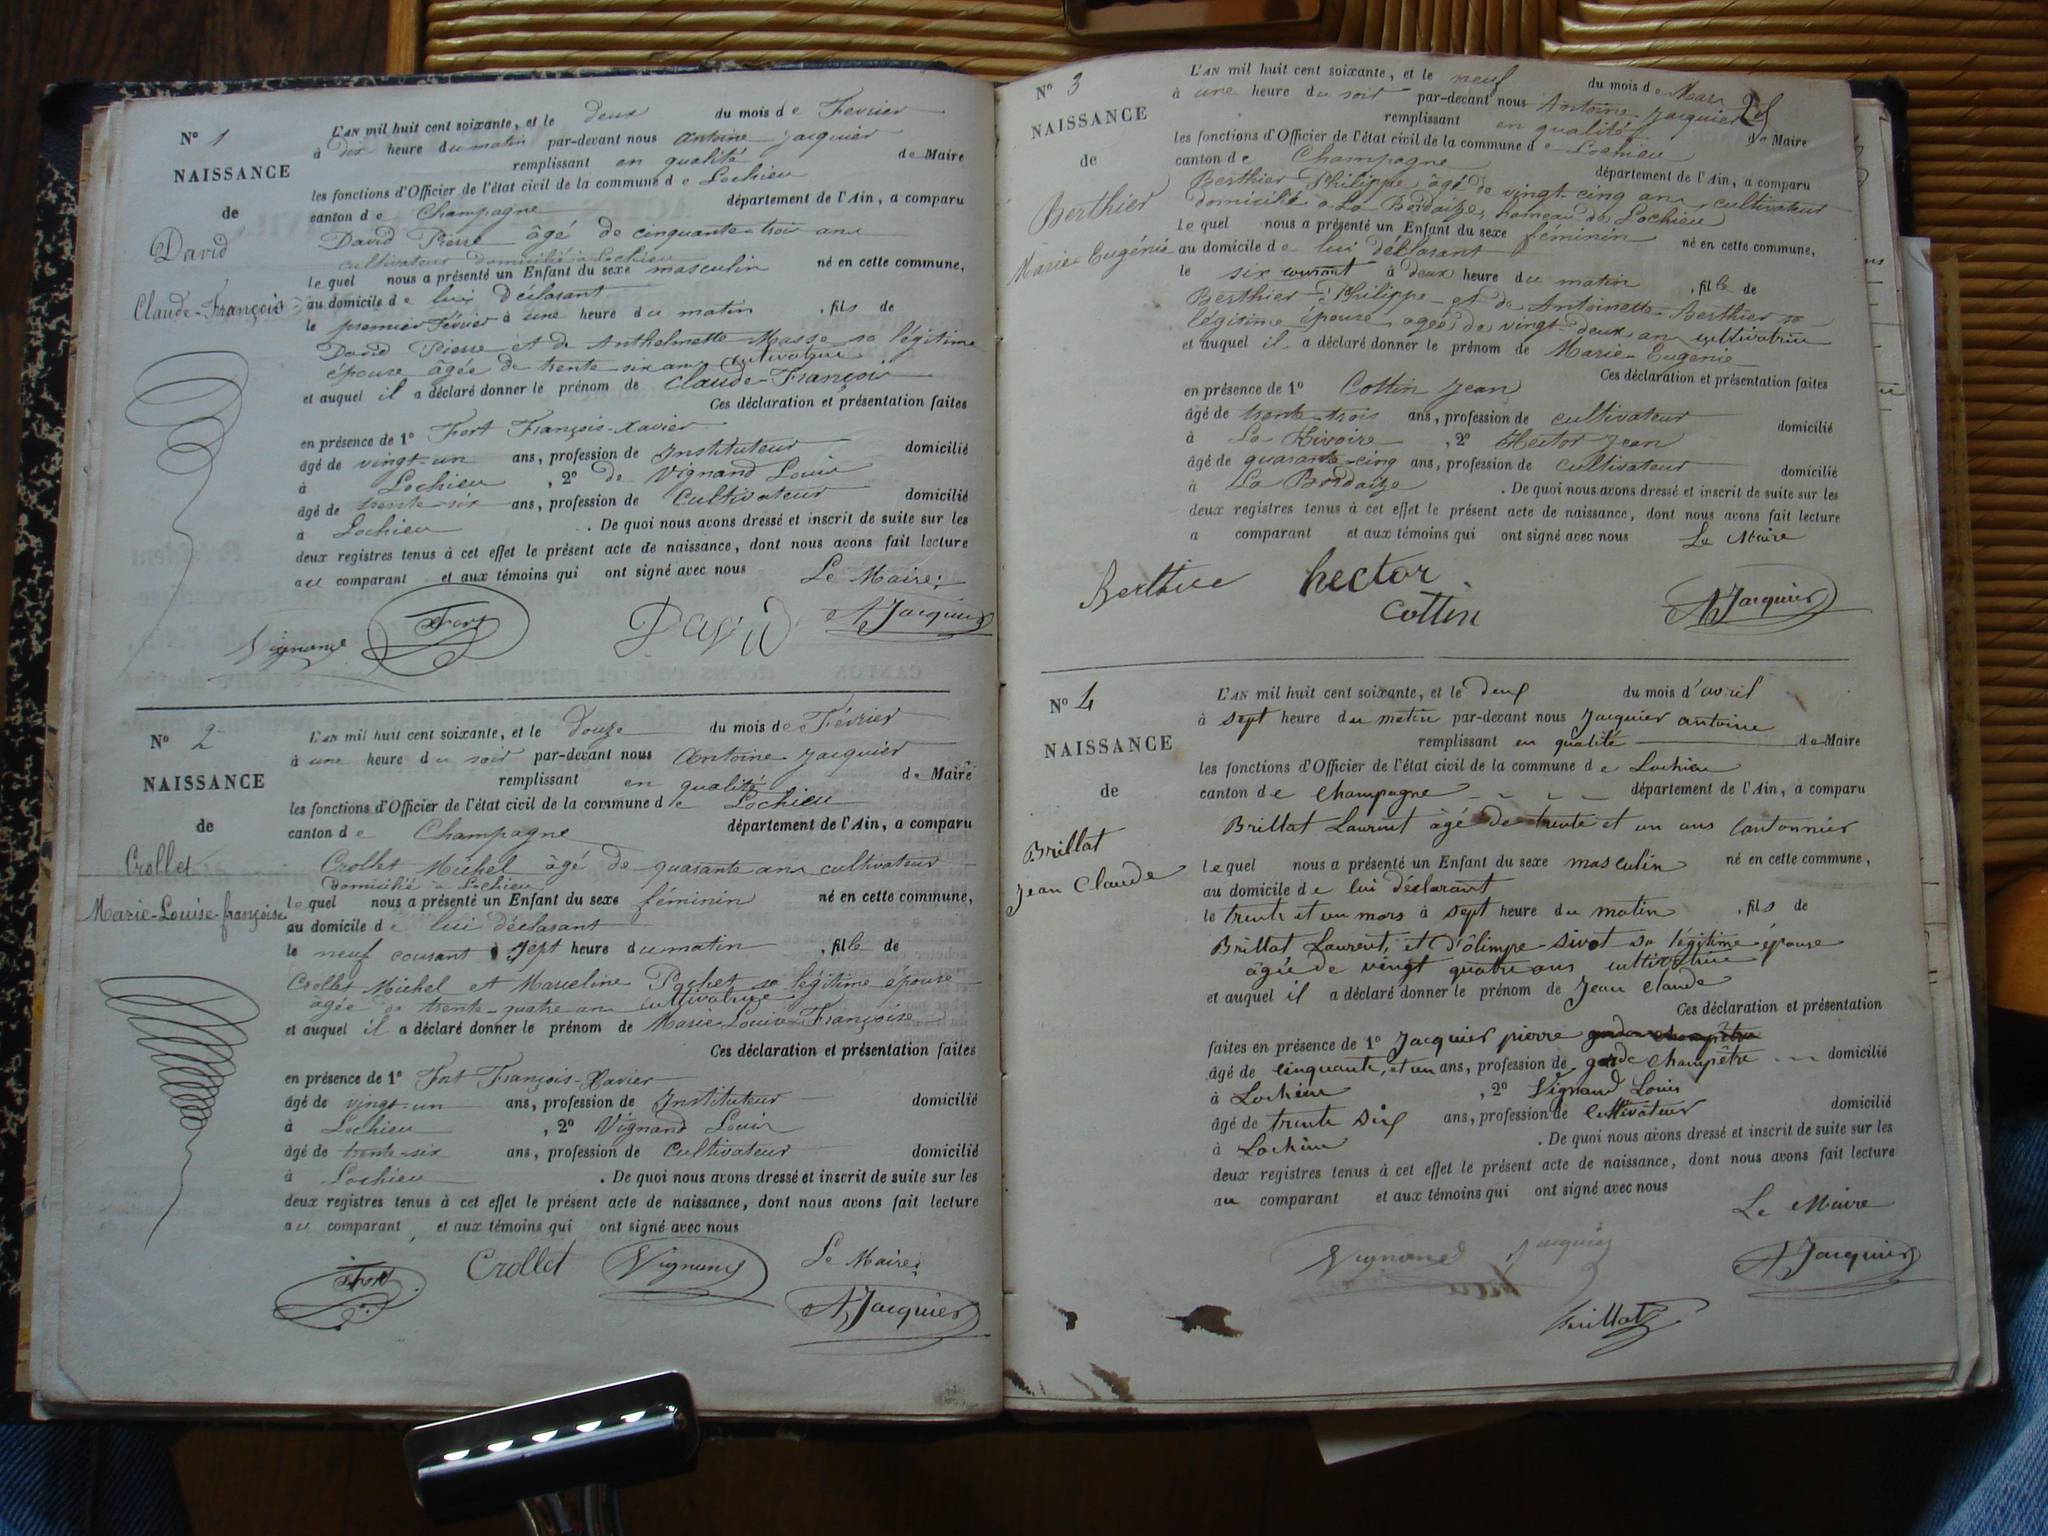 N° 1
NAISSANCE
de
David
Claude-François
L'AN mil huit cent soixante, et le deux du mois de Fevrier
à dix heure du matin par-devant nous Antoine Jacquier
remplissant en qualité de Maire
les fonctions d'Officier de l'état civil de la commune de Lochieu
canton de Champagne département de l'Ain, a comparu
David Pierre âgé de cinquante-trois ans
cultivateur domicilié à Lochieu
lequel nous a présenté un Enfant du sexe masculin né en cette commune,
au domicile de lui déclarant
le premier Février à une heure du matin , fils de
David Pierre et de Anthelmette Masse sa légitime
épouse âgée de trente six ans cultivatrice
et auquel il a déclaré donner le prénom de Claude-François
Ces déclaration et présentation faites
en présence de 1° Fort François-Xavier
âgé de vingt-un ans, profession de Instituteur domicilié
à Lochieu , 2° de Vignand Louis
âgé de trente-six ans, profession de Cultivateur domicilié
à Lochieu . De quoi nous avons dressé et inscrit de suite sur les
deux registres tenus à cet effet le présent acte de naissance, dont nous avons fait lecture
au comparant et aux témoins qui ont signé avec nous Le Maire:
Vignand Fort David A Jacquier
N° 2
NAISSANCE
de
Crollet
Marie-Louise-françoise
L'AN mil huit cent soixante, et le douze du mois de Février
à une heure du soir par-devant nous Antoine Jacquier
remplissant en qualité de Maire
les fonctions d'Officier de l'état civil de la commune de Lochieu
canton de Champagne département de l'Ain, a comparu
Crollet Michel âgé de quarante ans cultivateur
domicilié à Lochieu
lequel nous a présenté un Enfant du sexe féminin né en cette commune,
au domicile de lui déclarant
le neuf courant à Sept heure du matin , fille de
Crollet Michel et Marceline Pochet sa légitime épouse
âgée de trente-quatre ans cultivatrice
et auquel il a déclaré donner le prénom de Marie Louise Françoise
Ces déclaration et présentation faites
en présence de 1° Fort François-Xavier
âgé de vingt-un ans, profession de Instituteur domicilié
à Lochieu , 2° Vignand Louis
âgé de trente-six ans, profession de Cultivateur domicilié
à Lochieu . De quoi nous avons dressé et inscrit de suite sur les
deux registres tenus à cet effet le présent acte de naissance, dont nous avons fait lecture
au comparant, et aux témoins qui ont signé avec nous
Fort Crollet Vignand Le Maire:
A Jacquier
N° 3
NAISSANCE
de
Berthier
Marie-Eugénie
L'AN mil huit cent soixante, et le neuf du mois de Mars
à une heure du soir par-devant nous Antoine Jacquier
remplissant en qualité de Maire
les fonctions d'Officier de l'état civil de la commune de Lochieu
canton de Champagne département de l'Ain, a comparu
Berthier Philippe âgé de vingt-cinq ans, cultivateur
domicilié à La Bordaize, hameau de Lochieu
lequel nous a présenté un Enfant du sexe féminin né en cette commune,
au domicile de lui déclarant
le six courant à deux heure du matin , fille de
Berthier Philippe et de Antoinette Berthier sa
légitime épouse, agée de vingt-deux an cultivatrice
et auquel il a déclaré donner le prénom de Marie Eugénie
Ces déclaration et présentation faites
en présence de 1° Cottin Jean
âgé de trente-trois ans, profession de cultivateur domicilié
à La Rivoire , 2° Hector Jean
âgé de quarante-cinq ans, profession de cultivateur domicilié
à La Bordaize . De quoi nous avons dressé et inscrit de suite sur les
deux registres tenus à cet effet le présent acte de naissance, dont nous avons fait lecture
a comparant et aux témoins qui ont signé avec nous Le Maire
Berthier hector
cottin A Jacquier
N° 4
NAISSANCE
de
Brillat
Jean Claude
L'AN mil huit cent soixante, et le deux du mois d'avril
à sept heure du matin par-devant nous Jacquier antoine
remplissant en qualité de Maire
les fonctions d'Officier de l'état civil de la commune de Lochieu
canton de champagne département de l'Ain, a comparu
Brillat Laurent âgé de trente et un ans Cantonnier
lequel nous a présenté un Enfant du sexe masculin né en cette commune,
au domicile de lui déclarant
le trente et un mars à sept heure du matin , fils de
Brillat Laurent, et d'ôlimpe sivot sa légitime épouse
âgée de vingt quatre ans, cultivatrice
et auquel il a déclaré donner le prénom de Jean claude
Ces déclaration et présentation
faites en présence de 1° Jacquier pierre garde champêtre
âgé de cinquante, et un ans, profession de garde champêtre domicilié
à Lochieu , 2° Vignand Louis
âgé de trente six ans, profession de cultivateur domicilié
à Lochieu . De quoi nous avons dressé et inscrit de suite sur les
deux registres tenus à cet effet le présent acte de naissance, dont nous avons fait lecture
au comparant et aux témoins qui ont signé avec nous
Le Maire
Vignand Jacquier A Jacquier
Brillat